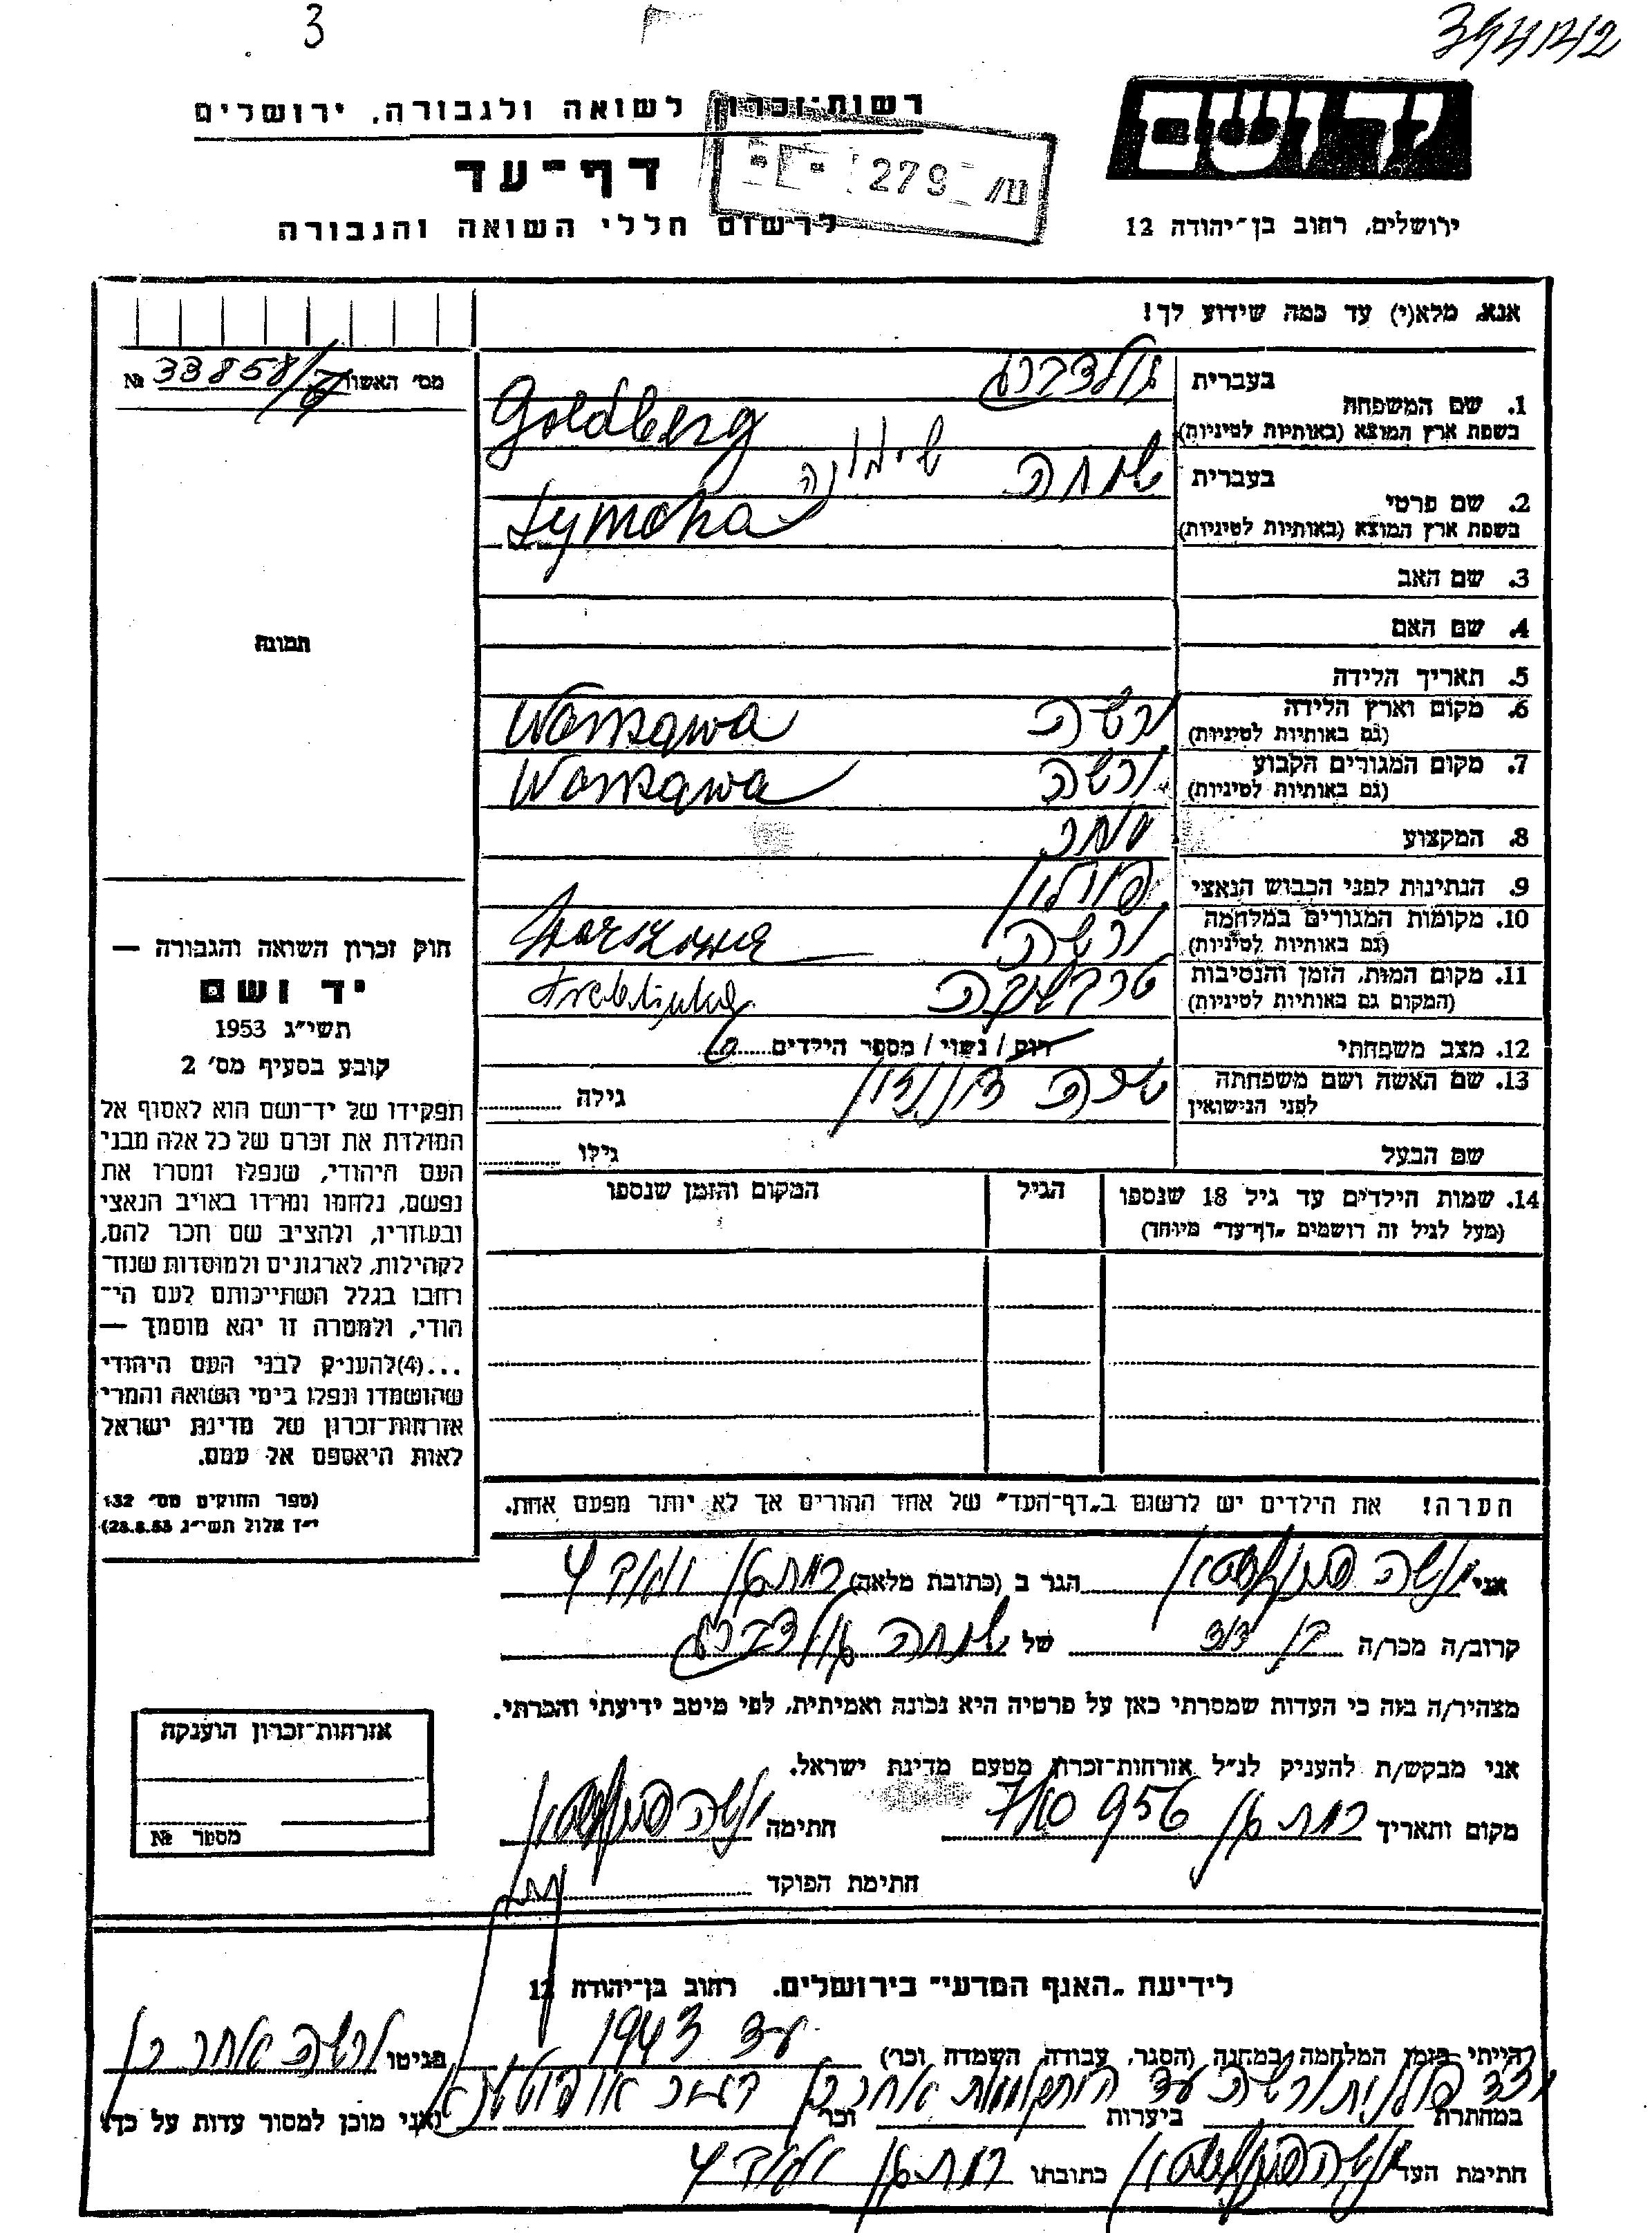 3
394142
רשות־זכרון לשואה ולגבורה, ירושלים
דף־עד
לרשום חללי השואה והגבורה
279
יד ושם
ירושלים, רחוב בן־יהודה 12
אנא, מלא(י) עד כמה שידוע לך!
מס׳ האשור 33858 №
1. שם המשפחה
בעברית גולדברג
בשפת ארץ המוצא (באותיות לטיניות) Goldberg
2. שם פרטי
בעברית שמחה שימונה
בשפת ארץ המוצא (באותיות לטיניות) Symcha
3. שם האב
4. שם האם
5. תאריך הלידה
6. מקום וארץ הלידה ורשה Warszawa
(גם באותיות לטיניות)
7. מקום המגורים הקבוע ורשה Warszawa
(גם באותיות לטיניות)
8. המקצוע סוחר
9. הנתינות לפני הכבוש הנאצי פולין
10. מקומות המגורים במלחמה ורשה Warszawa
(גם באותיות לטיניות)
11. מקום המות, הזמן והנסיבות טרבלינקה Treblinka
(המקום גם באותיות לטיניות)
12. מצב משפחתי רווק / נשוי / מספר הילדים
13. שם האשה ושם משפחתה שרה גילה
לפני הנישואין
שם הבעל גילו
14. שמות הילדים עד גיל 18 שנספו הגיל המקום והזמן שנספו
(מעל לגיל זה רושמים „דף־עד" מיוחד)
הערה! את הילדים יש לרשום ב„דף־העד" של אחד ההורים אך לא יותר מפעם אחת.
תמונה
חוק זכרון השואה והגבורה —
יד ושם
תשי״ג 1953
קובע בסעיף מס׳ 2
תפקידו של יד־ושם הוא לאסוף אל
המולדת את זכרם של כל אלה מבני
העם היהודי, שנפלו ומסרו את
נפשם, נלחמו ומרדו באויב הנאצי
ובעוזריו, ולהציב שם וזכר להם,
לקהילות, לארגונים ולמוסדות שנח־
רבו בגלל השתייכותם לעם הי־
הודי, ולמטרה זו יהא מוסמך —
...(4)להעניק לבני העם היהודי
שהושמדו ונפלו בימי השואה והמרי
אזרחות־זכרון של מדינת ישראל
לאות היאספם אל עמם.
(ספר החוקים מס׳ 132
י״ז אלול תשי״ג 28.8.53)
אני משה הגר ב (כתובת מלאה) רמת גן
קרוב/ה מכר/ה בן דוד של שמחה גולדברג
מצהיר/ה בזה כי העדות שמסרתי כאן על פרטיה היא נכונה ואמיתית, לפי מיטב ידיעתי והכרתי.
אני מבקש/ת להעניק לנ״ל אזרחות־זכרון מטעם מדינת ישראל.
מקום ותאריך רמת גן 956 חתימה משה
חתימת הפוקד
אזרחות־זכרון הוענקה
מספר №
לידיעת „האגף המדעי" בירושלים, רחוב בן־יהודה 12
הייתי בזמן המלחמה במחנה (הסגר, עבודה, השמדה וכו׳) עד 1943 בגיטו ורשה אחר כן
במחתרת ביערות וכו׳ ואני מוכן למסור עדות על כך.
חתימת העד משה כתובתו רמת גן